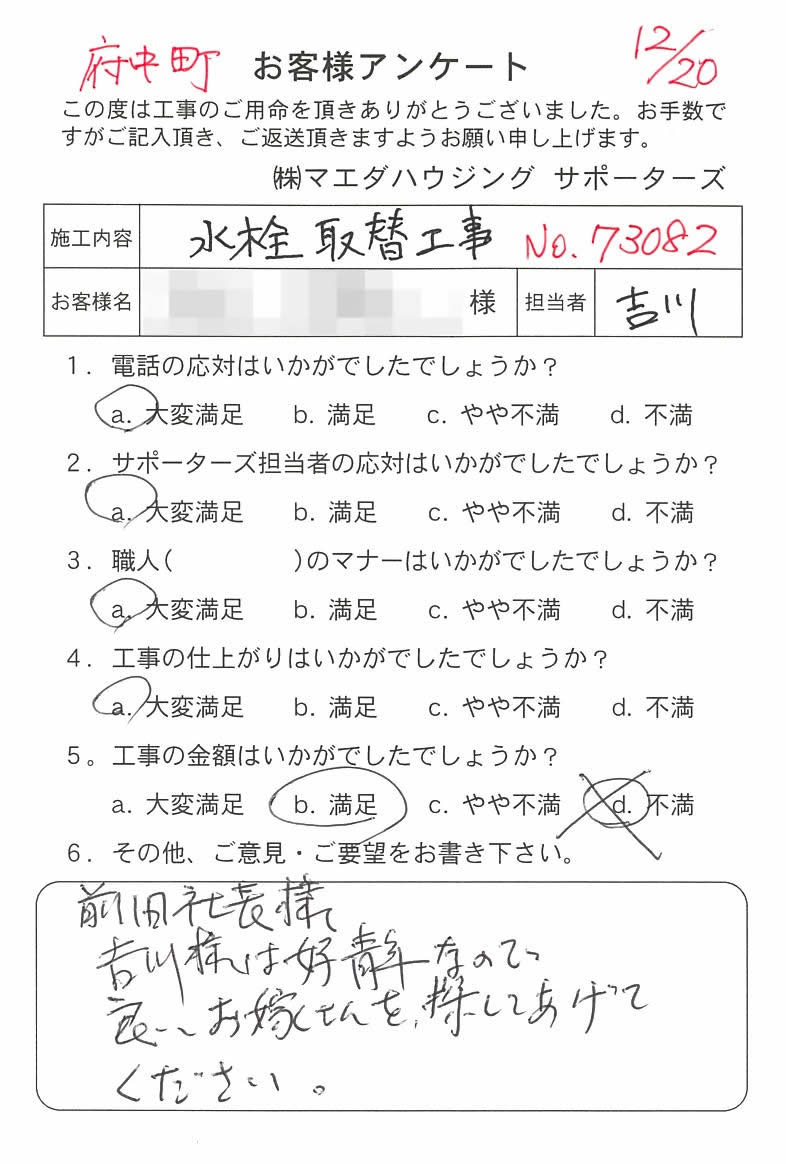 府中町 お客様アンケート 12/20
この度は工事のご用命を頂きありがとうございました。お手数で
すがご記入頂き、ご返送頂きますようお願い申し上げます。
㈱マエダハウジング サポーターズ
施工内容 水栓取替工事 No.73082
お客様名 様 担当者 吉川
1. 電話の応対はいかがでしたでしょうか？
a. 大変満足 b. 満足 c. やや不満 d. 不満
2. サポーターズ担当者の応対はいかがでしたでしょうか？
a. 大変満足 b. 満足 c. やや不満 d. 不満
3. 職人( )のマナーはいかがでしたでしょうか？
a. 大変満足 b. 満足 c. やや不満 d. 不満
4. 工事の仕上がりはいかがでしたでしょうか？
a. 大変満足 b. 満足 c. やや不満 d. 不満
5。工事の金額はいかがでしたでしょうか？
a. 大変満足 b. 満足 c. やや不満 d. 不満
6. その他、ご意見・ご要望をお書き下さい。
前田社長様
吉川様は好青年なので
良いお嫁さんを探してあげて
ください。